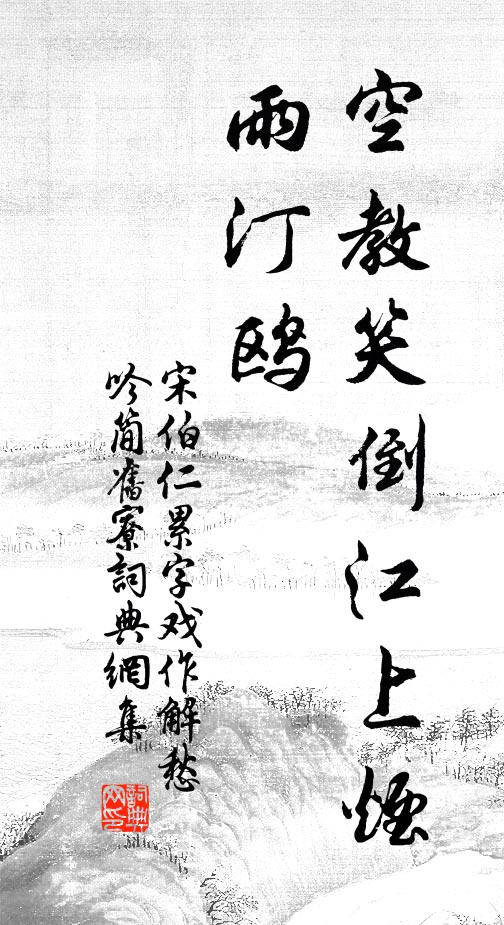 空教笑倒江上煙
雨汀鸥
宋伯仁累字戏作解愁
吟簡舊寮詞典網集